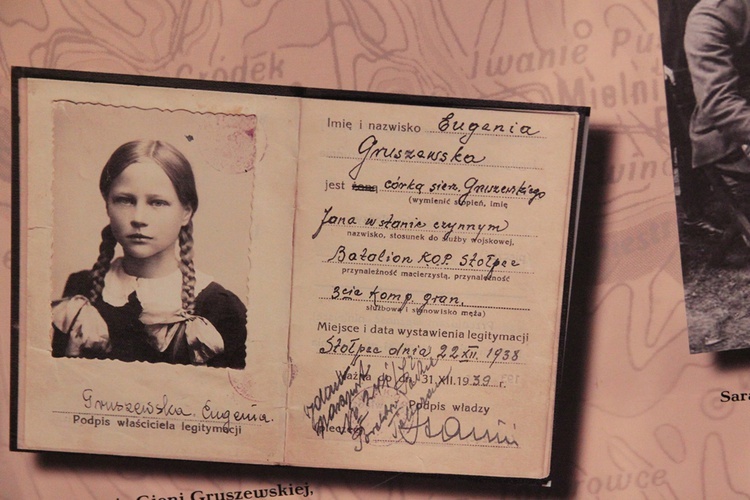 Gródek
Iwanie Pu
Mielni
Gruszewska Eugenia.
Podpis właściciela legitymacji
Imię i nazwisko Eugenia
Gruszewska
jest żoną córką sierż. Gruszewskiego
(wymienić stopień, imię
Jana w stanie czynnym
nazwisko, stosunek do służby wojskowej,
Batalion K.O.P. Stołpce
przynależność macierzystą, przynależność
3cia Komp. gran.
służbową i stanowisko męża)
Miejsce i data wystawienia legitymacji
Stołpce dnia 22 XII. 1938
Ważna do dn. 31.XII.1939 r.
Podpis władzy
pieczęć
Gieni Gruszewskiej,
Sara
owce